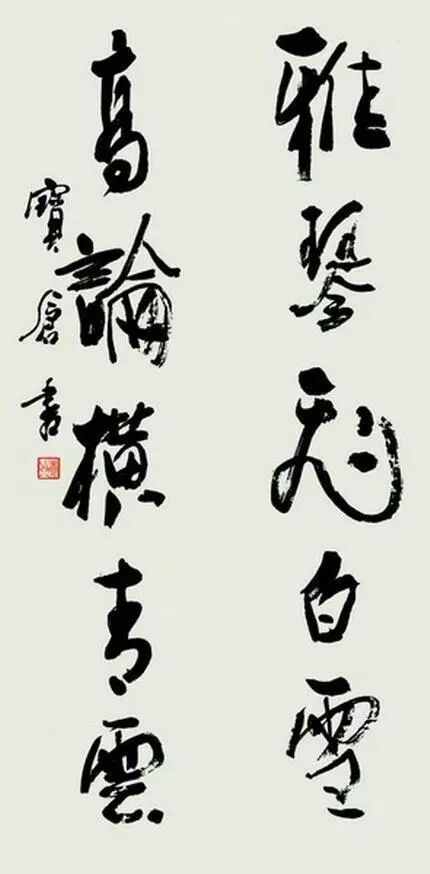 雅琴飛白雪
高論橫青雲
寶倉書